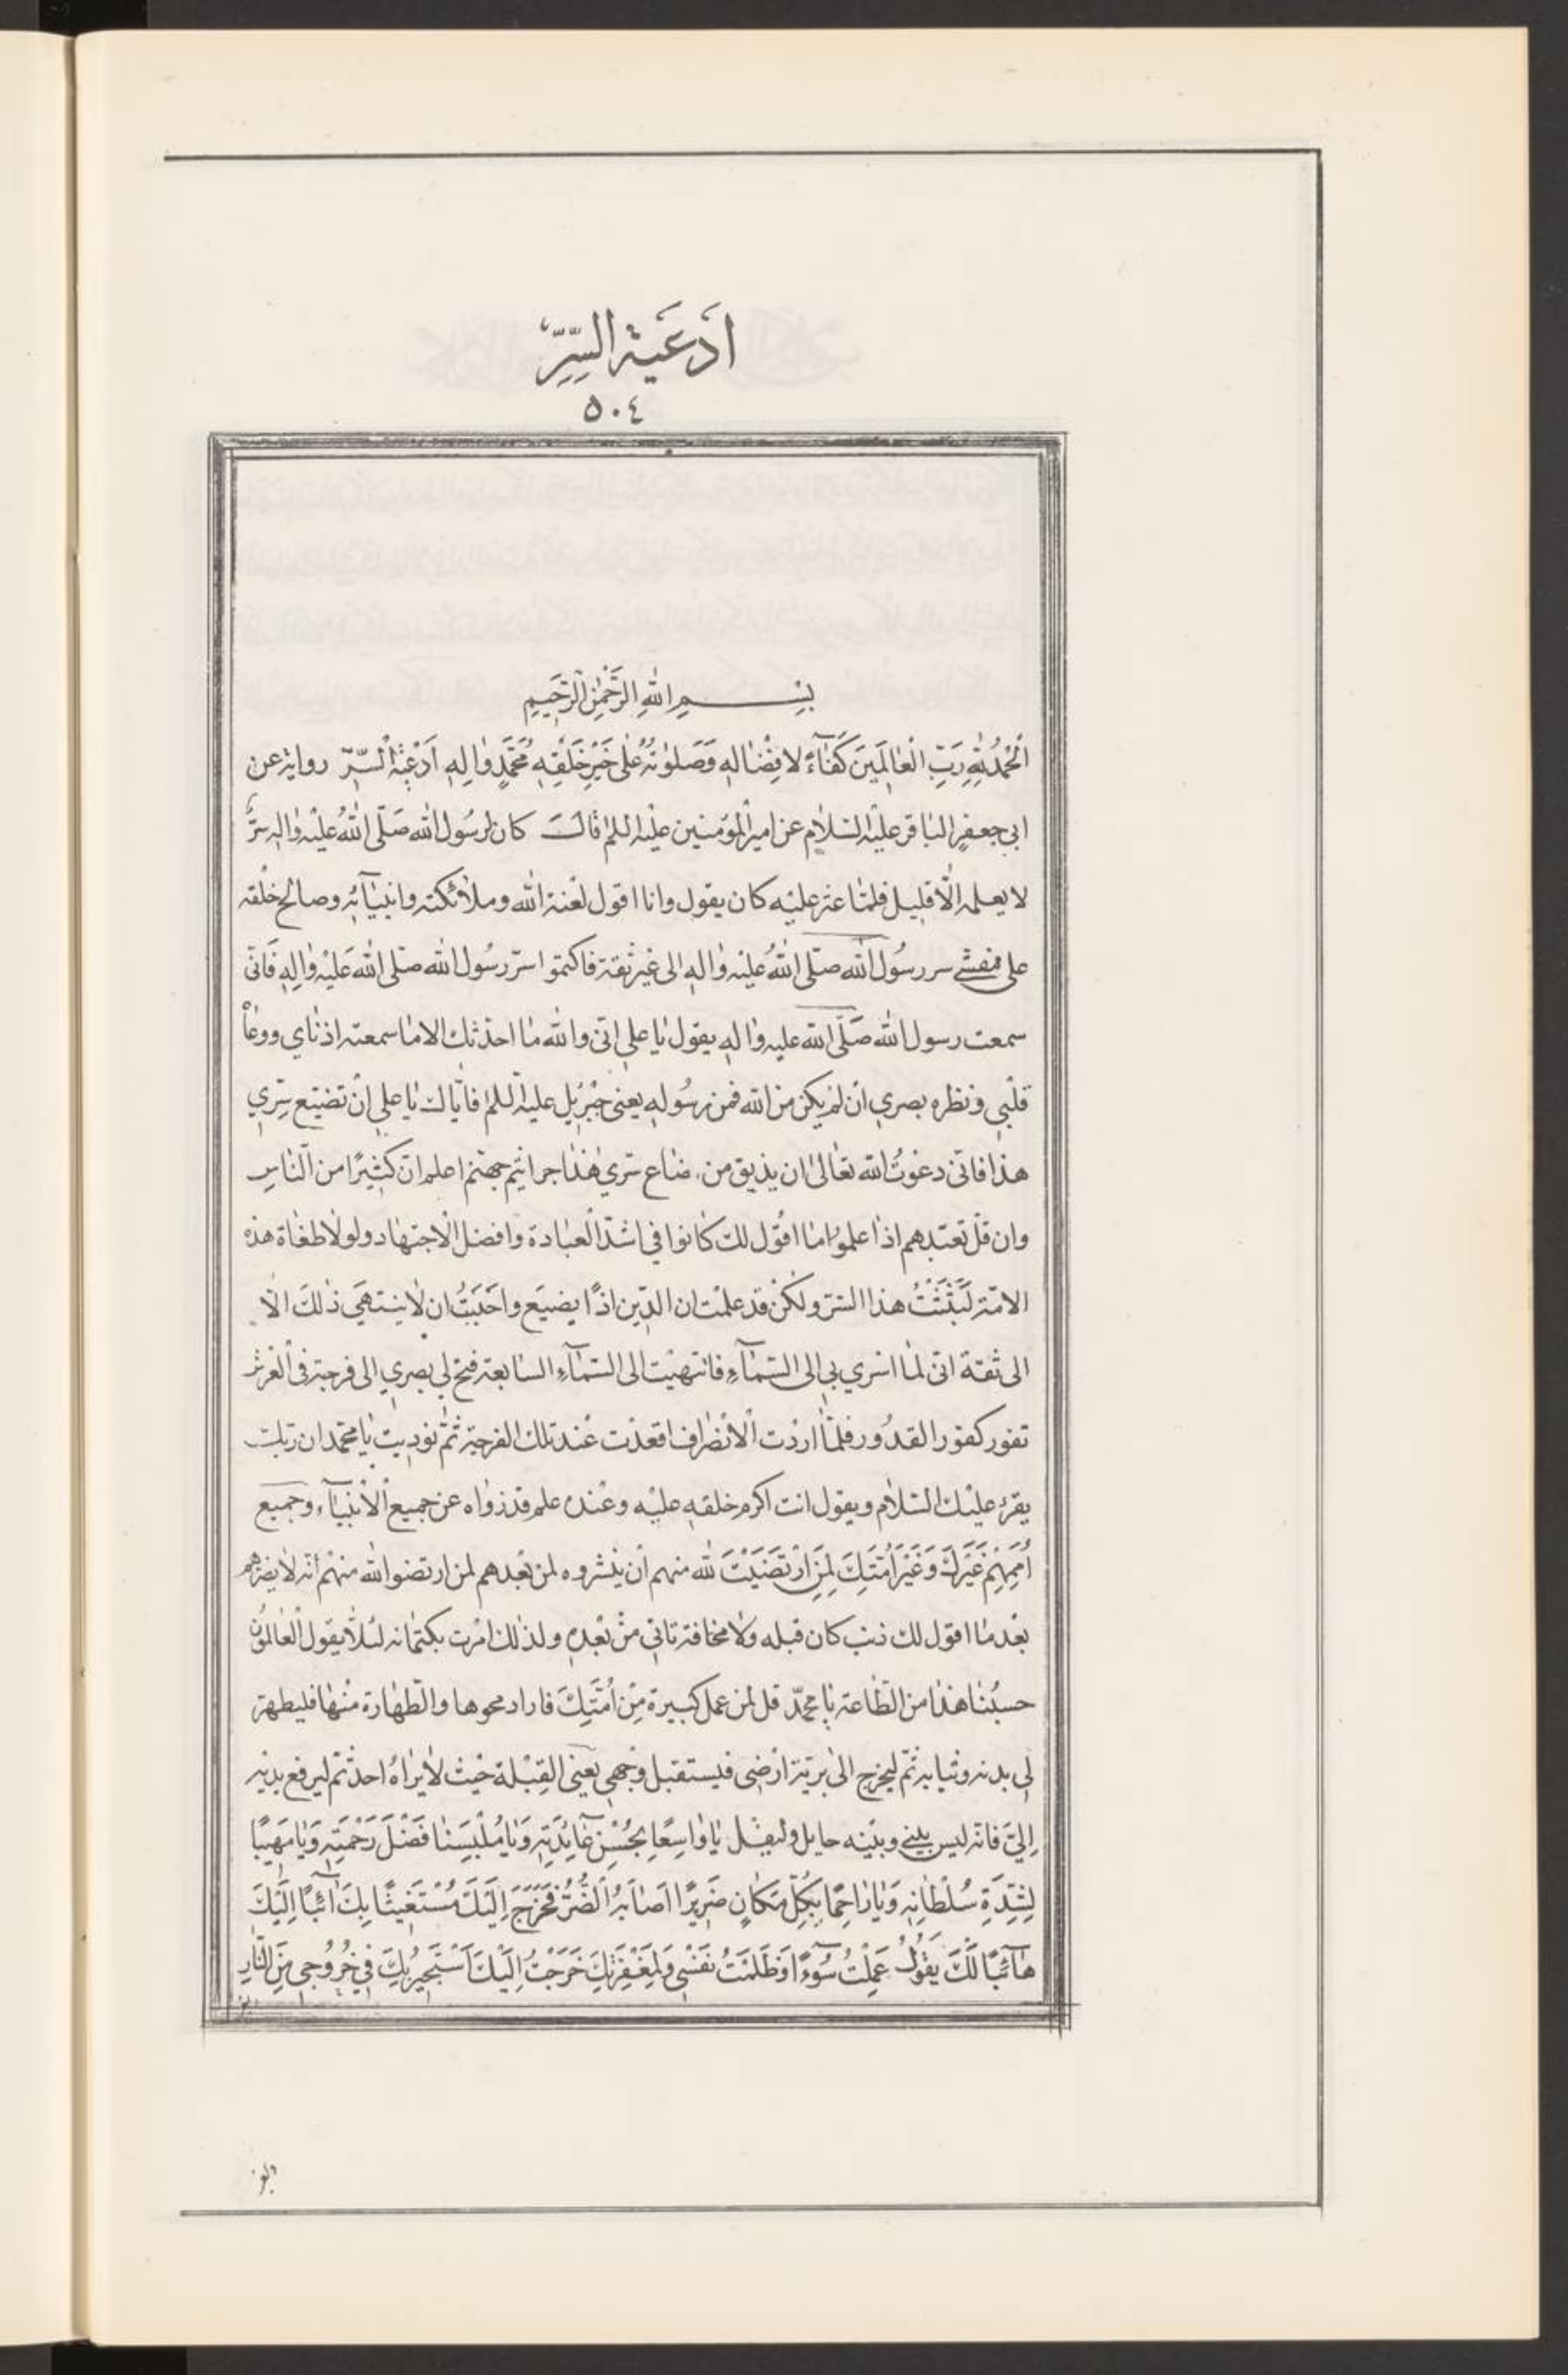 اَدعَیةالسِّرِّ
٥٠٤
بِسْمِ اللهِ الرَّحْمٰنِ الرَّحِيمِ
اَلْحَمْدُ لِلّٰهِ رَبِّ الْعٰالَمِينَ كَفٰاءً لافِضٰالِهِ وَصَلَوٰتُهُ عَلٰى خَيْرِ خَلْقِهِ مُحَمَّدٍ وٰالِهِ اَدْعِيَةُ السِّرِّ رواية عن
ابي جعفرٍ الباقر عليْه السّلام عن امير المؤمنين عليْه السلم قال كان لرسُول الله صَلّى اللهُ عليْه واله سرٌّ
لا يعلمه الّا قليل فلمّا عثر عليْه كان يقول وانا اقول لعْنة الله وملائكته وانبيآئه وصالح خلْقه
على مفشي سر رسُول الله صلّى اللهُ عليْه واله الى غير ثقة فاكتموا سرّ رسُول الله صلى الله عَليْه واٰلِهِ فَانّى
سمعت رسول الله صَلّى الله عليه واٰله يقول يٰا علي انّى والله مٰا احدّثك الا مٰا سمعته اذنٰاي ووعٰاْ
قلْبي ونظره بصري انْ لم يكن من الله فمن رسُوله يعني جبْرئيل عليْه السلم فايّاك يٰا علي انْ تضيّع سِرّي
هذا فانّى دعَوْتُ الله تعٰالىٰ ان يذيق من ضٰاع سرّي هٰذٰا جراثيم جهنّم اعلم انّ كثيرًا من النّاسِ
وان قلّ تعبّدهم اذٰا علموا مٰا اقُول لك كانوا في اشدّ العبٰادة وافضل الاجتهٰاد ولولا طغٰاة هذه
الامّة لَبَثَثْتُ هذا السّرّ ولكنْ قد علمْت ان الدّين اذًا يضيَع واحْبَبْتُ ان لا ينتهَي ذٰلكَ الّا
الى ثقة انّى لمٰا اسْري بي الى السّمٰآءِ فانتهيْت الى السّمٰآءِ السّابعة فتح لي بصري الى فرجة في العرْش
تفور كفور القدُور فلمّا اردْت الانْصراف اقعدْت عْند تلك الفرجة ثمّ نوديت يٰا محمّد ان ربّك
يقرء عليْك السّلام ويقول انت اكرم خلقه عليْه وعنْده علم قد زواه عن جميع الانبيٰآء وجميع
اُمَمِهِمْ غَيْرَكَ وَغَيْرَ اُمَّتِكَ لِمَنِ ارْتَضَيْتَ لله منهم انْ ينْشروه لمن بعْدهم لمن ارتضوا لله منهْم انّه لا يضرّهم
بعْد مٰا اقول لك ذنب كان قبله ولا مخافة تاتي منْ بعْدِهِ ولذلك امرْت بكتمانه لئلّا يقول العٰالمُون
حسبُنٰا هذٰا من الطّاعة يٰا محمّد قل لمن عمل كبيرة مِنْ اُمَّتِكَ فاراد محوها والطّهارة منْهٰا فليطهرّ
لي بدنه وثيابه ثمّ ليخرج الىٰ بريّة ارْضي فيستقبل وجْهي يعْني القِبْلة حيْث لا يرٰاهُ احدٌ ثم ليرفع يديْه
اِليَّ فانّه ليس بيْني وبيْنه حايل وليقل يٰا وٰاسِعًا بِحُسْنِ عٰائِدَتِهِ وَيٰا مُلْبِسَنٰا فَضْلَ رَحْمَتِهِ وَيٰا مَهيبًا
لِشِدَّةِ سُلْطٰانِهِ وَيٰا رٰاحِمًا بِكُلِّ مَكٰانٍ ضَرِيرًا اَصٰابَهُ الضُّرُّ فَخَرَجَ اِلَيْكَ مُسْتَغِيثًا بِكَ اٰئِبًا اِلَيْكَ
هٰآئِبًا لَّكَ يَقُولُ عَمِلْتُ سُوٓءًا وَظَلَمْتُ نَفْسِى وَلِمَغْفِرَتِكَ خَرَجْتُ اِلَيْكَ اَسْتَجِيرُ بِكَ فِي خُرُوجِي مِنَ النّٰارِ